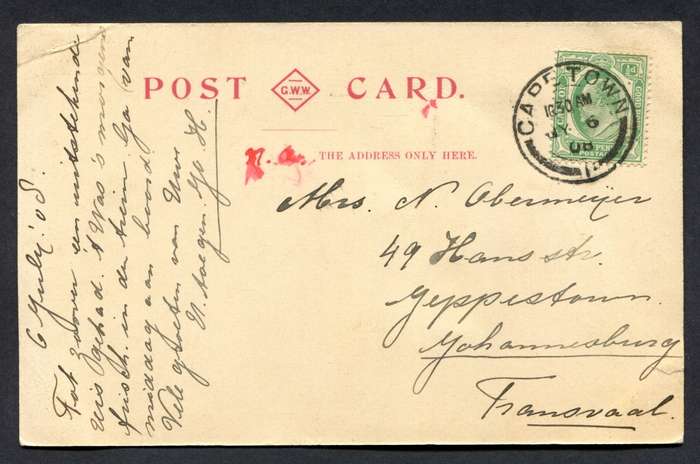 POST G.W.W. CARD.
n.a. THE ADDRESS ONLY HERE.
CAPE TOWN
10.30 AM
6
08
Mrs. N. Obermeijer
49 Hans str.
Jeppestown
Johannesburg
Transvaal.
6 July '08.
Tot zoover een uitstekende
reis gehad. 't Was 's morgens
frisch in de trein. Ga van
middag aan boord.
Vele groeten van Uwe